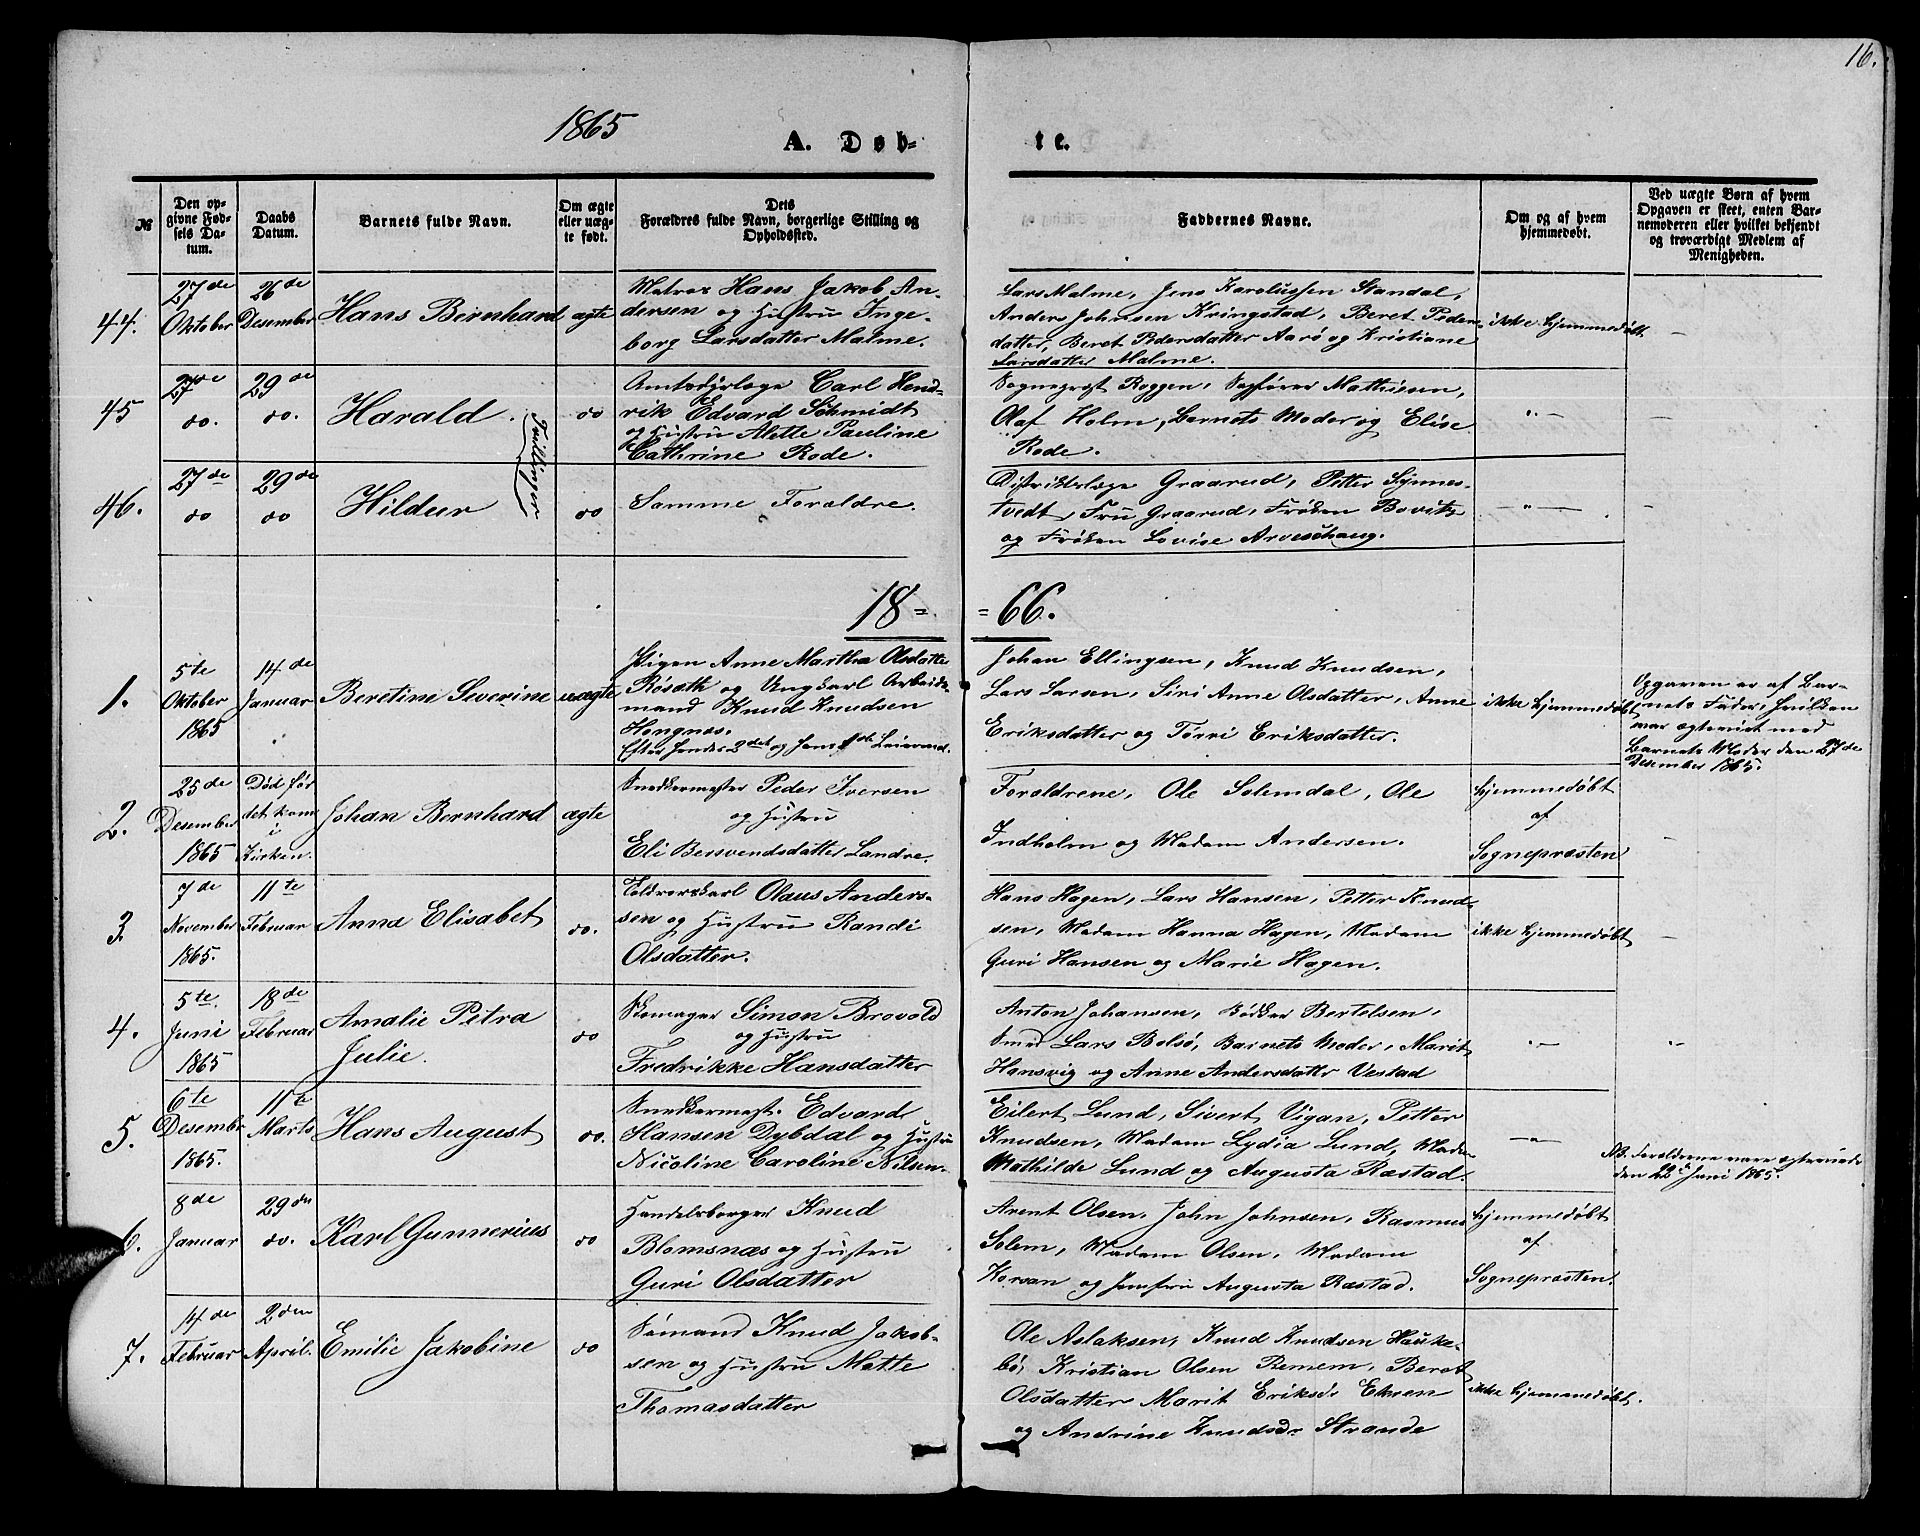 16.
1865
A. Døb-
te.
№
Den op-
givne Fød-
sels Da-
tum.
Daabs
Datum.
Barnets fulde Navn.
Om ægte
eller uæg-
te født.
Dets
Forældres fulde Navn, borgerlige Stilling og
Opholdssted.
Faddernes Navne.
Om og af hvem
hjemmedøbt.
Ved uægte Børn af hvem
Opgaven er skeet, enten Bar-
nemoderen eller hvilket bekjendt
og troværdigt Medlem af
Menigheden.
44.
27de
Oktober
26de
Desember
Hans Bernhard
ægte
Matros Hans Jakob An-
dersen og Hustru Inge-
borg Larsdatter Malme.
Lars Malme, Jens Karolussen Standal,
Anders Johnsen Kringstad, Beret Peders-
datter, Beret Pedersdatter Aarø og Kristiane
Larsdatter Malme.
ikke hjemmedøbt
45
27de
do.
29de
do.
Harald.
Tvillinger
do
Amtsdyrlæge Carl Hend-
rik Edvard Schmidt
og Hustru Alette Pauline
Cathrine Rode.
Sogneprest Roggen, Sagfører Mathiesen,
Olaf Holm, Barnets Moder og Elise
Rode.
46.
27de
do
29de
do
Hildur
do
Samme Forældre.
Distriktslæge Graarud, Petter Synnes-
tvedt, Fru Graarud, Frøken
og Frøken Lovise
18=
=66.
1.
5te
Oktober
1865
14de
Januar
Beretine Severine
uægte
Pigen Anne Martha Olsdatter
Røsæth og Ungkarl Arbeids-
mand Knud Knudsen
Hongnæs.
Efter hendes 2det og hans 1ste Leiermaal.
Johan Ellingsen, Knud Knudsen,
Lars Larsen, Siri Anne Olsdatter, Anne
Eriksdatter og Tørri Eriksdatter.
ikke hjemmedøbt
Opgaven er af Bar-
nets Fader, hvilken
var ægteviet med
Barnets Moder den 27de
Desember 1865.
2.
25de
Desember
1865
Død før
det kom
i
Kirken.
Johan Bernhard
ægte
Snedkermester Peder Iversen
og Hustru
Eli Bersvendsdatter Landre.
Forældrene, Ole Solemdal, Ole
Indholm og Madam Andersen.
hjemmedøbt
af
Sognepresten
3.
7de
November
1865.
11te
Februar
Anna Elisabet
do.
Toldrorskarl Olaus Anders-
sen og Hustru Randi
Olsdatter.
Hans Hagen, Lars Hansen, Petter Knud-
sen, Madam Hanna Hagen, Madam
Guri Hansen og Marie Hagen.
ikke hjemmedøbt
4.
5te
Juni
1865
18de
Februar
Amalie Petra
Julie.
do
Skomager Simon Brovold
og Hustru
Fredrikke Hansdatter
Anton Johansen, Bødker Bertelsen,
Smed Lars Bolsø, Barnets Moder, Marit
Hansvig og Anne Andersdatter Vestad
5.
6te
Desembr
1865.
11te
Marts
Hans August
do.
Snedkermest. Edvard
Hansen Dybdal og Hustru
Nicoline Caroline Nilsen
Eilert Lund, Sivert Vigan, Petter
Knudsen, Madam Lydia Lund, Madm
Mathilde Lund og Augusta Ræstad.
NB. Forældrene vare ægteviede
den Juni 1865.
6.
8de
Januar
29de
do.
Karl Gunnerius
do
Handelsborger Knud
Blomsnæs og Hustru
Guri Olsdatter
Arent Olsen, John Johnsen, Rasmus
Solem, Madam Olsen, Madam
Korsan og Jomfru Augusta Ræstad.
hjemmedøbt
af
Sognepresten.
7.
14de
Februar
2den
April.
Emilie Jakobine
do
Sømand Knud Jakob-
sen og Hustru Matte
Thomasdatter
Ole Aslaksen, Knud Knudsen Hauke-
bø, Kristian Olsen Remem, Beret
Olsdatter Marit Eriksdr Ekren
og Andrine Knudsdr Strande
ikke hjemmedøbt.